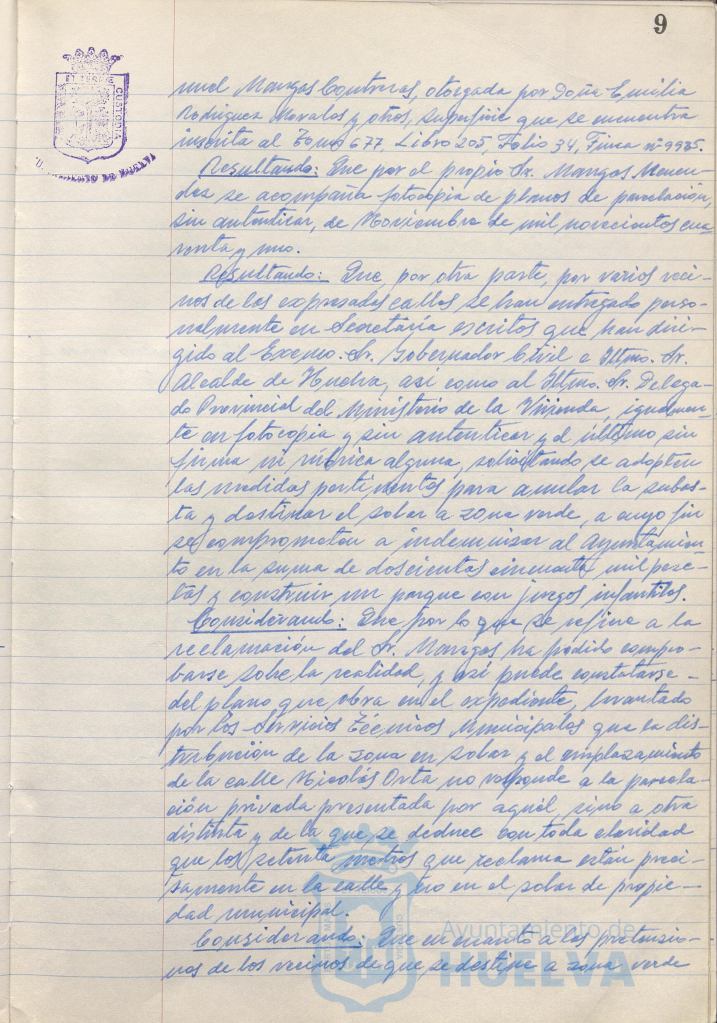 9
nuel Mangas Contreras, otorgada por Doña Emilia
Rodriguez Novalos y otros, superficie que se encuentra
inscrita al Tomo 677, Libro 205, Folio 34, Finca nº 9985.
Resultando: Que por el propio Sr. Mangas Menen-
dez se acompaña fotocopia de planos de parcelación,
sin autenticar, de Noviembre de mil novecientos cua-
renta y uno.
Resultando: Que, por otra parte, por varios veci-
nos de las expresadas calles se han entregado perso-
nalmente en Secretaría escritos que han diri-
gido al Excmo. Sr. Gobernador Civil e Iltmo. Sr.
Alcalde de Huelva, así como al Iltmo. Sr. Delega-
do Provincial del Ministerio de la Vivienda, igualmen-
te en fotocopia y sin autenticar y el último sin
firma ni rúbrica alguna, solicitando se adopten
las medidas pertinentes para anular la subas-
ta y destinar el solar a zona verde, a cuyo fin
se comprometen a indemnizar al Ayuntamien-
to en la suma de doscientas cincuenta mil pese-
tas y construir un parque con juegos infantiles.
Considerando: Que por lo que se refiere a la
reclamación del Sr. Mangas ha podido compro-
barse sobre la realidad, y así puede constatarse
del plano que obra en el expediente, levantado
por los Servicios Técnicos Municipales que la dis-
tribución de la zona en solar y el emplazamiento
de la calle Nicolás Orta no responde a la parcela-
ción privada presentada por aquél sino a otra
distinta y de la que se deduce con toda claridad
que los setenta metros que reclama están preci-
samente en la calle y no en el solar de propie-
dad municipal.
Considerando: Que en cuanto a las pretensio-
nes de los vecinos de que se destine a zona verde
CUSTODIA
AYUNTAMIENTO DE HUELVA
Ayuntamiento de
HUELVA